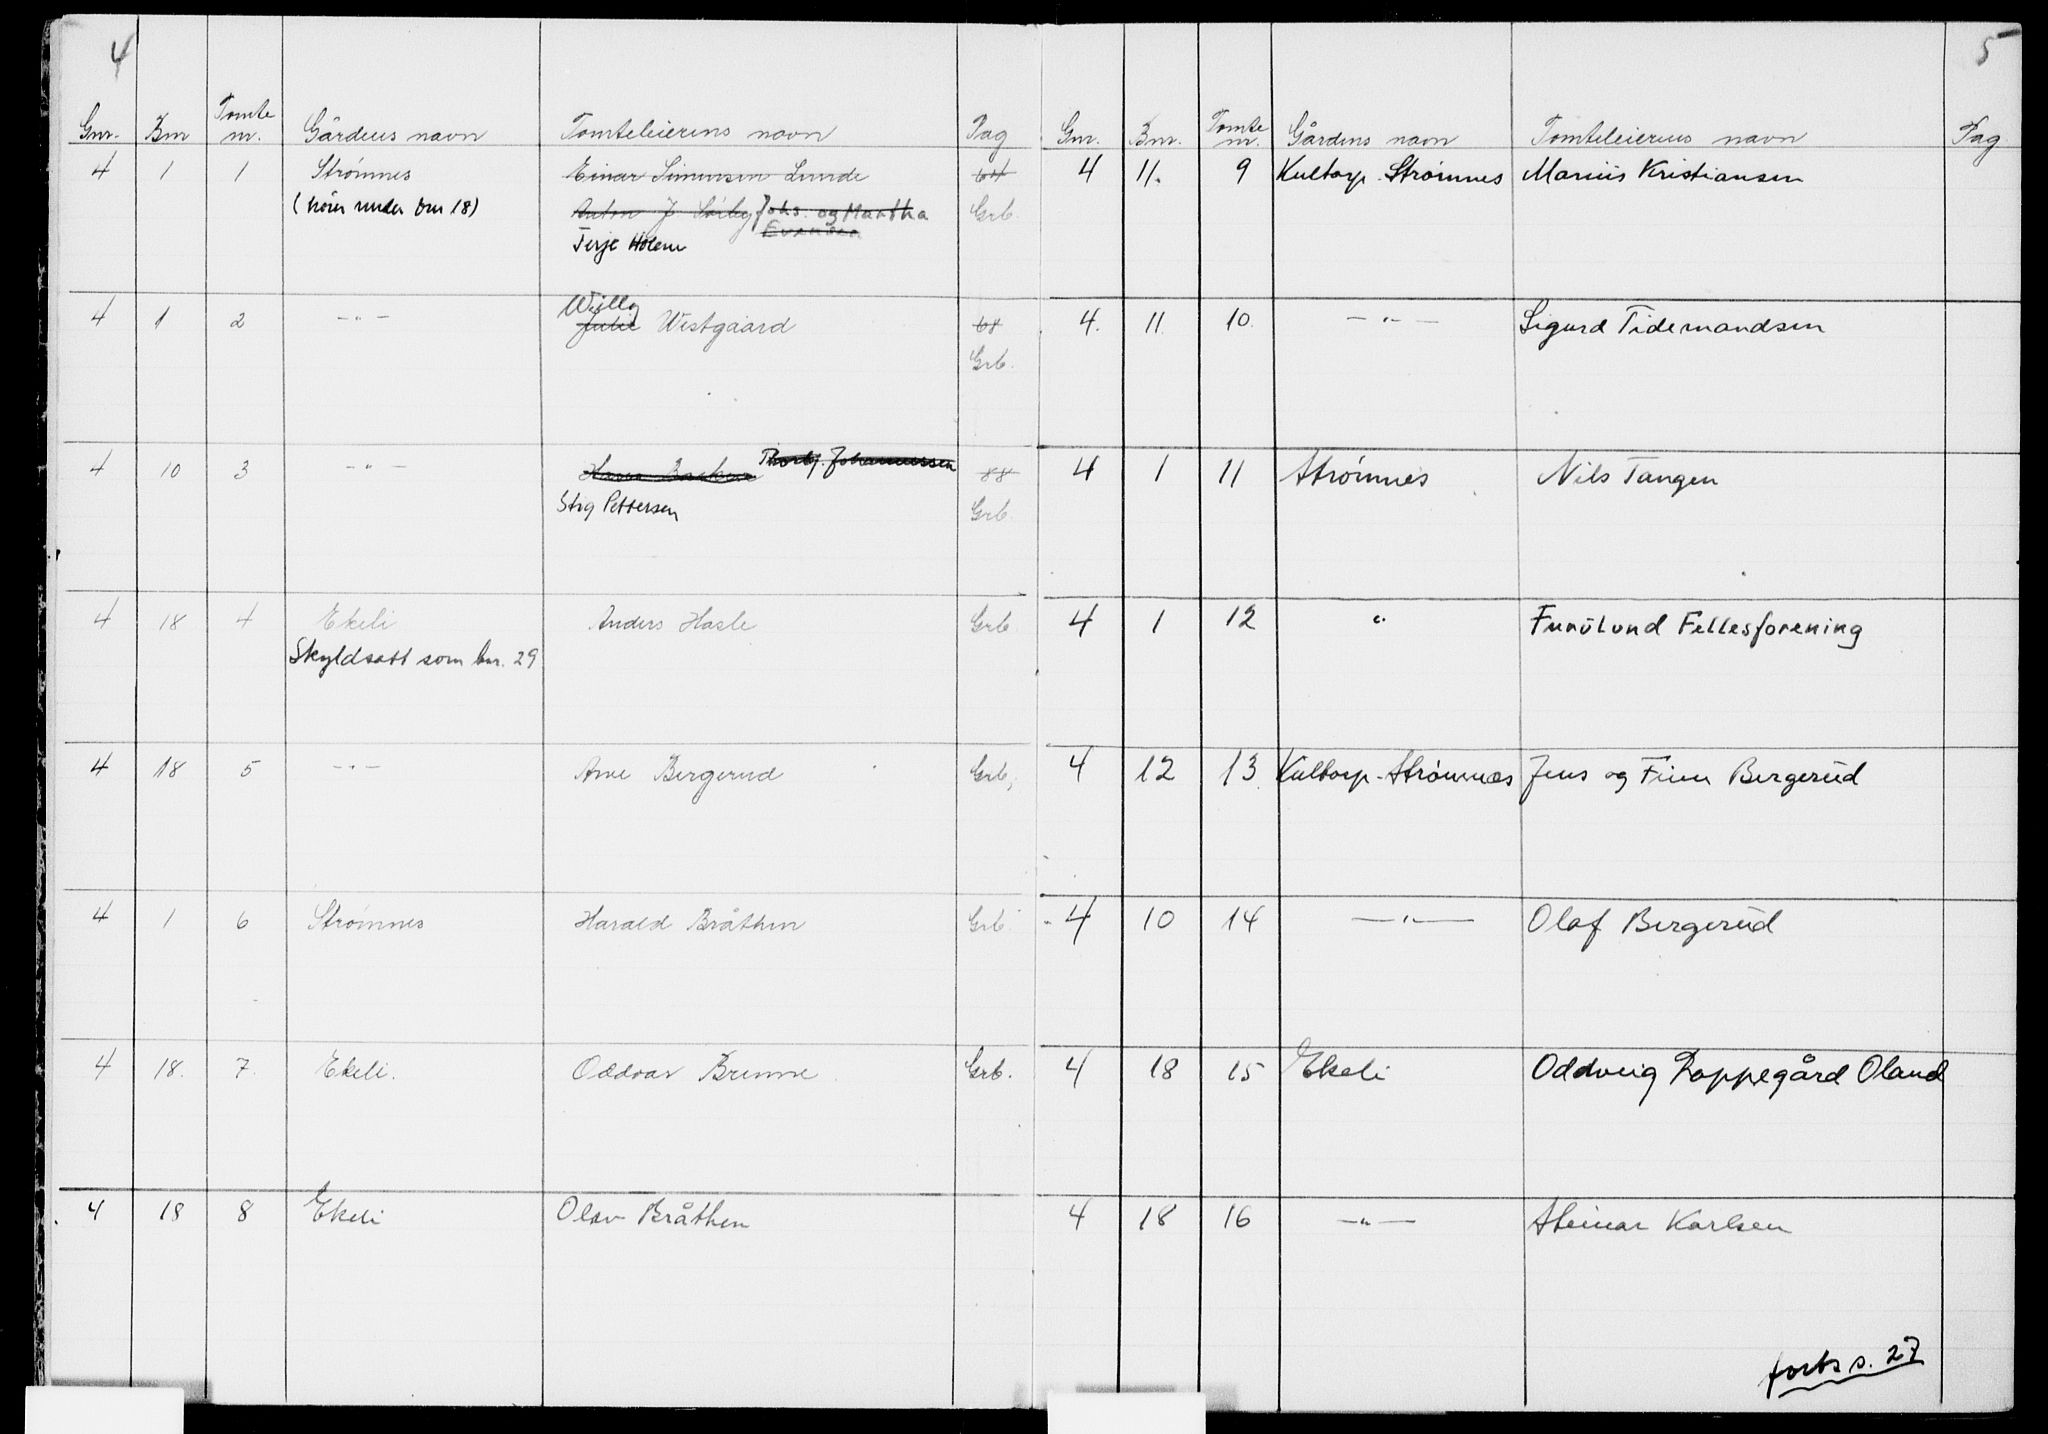 4
Gnr. Bnr Tomte nr. Gårdens navn Tomteleierens navn Pag
4 1 1 Strømnes Einar Simensen Lunde 64
(hører under bnr 18) Anton J. Sørby Johs. og Martha Evensen Grb.
Terje Holem
4 1 2 -"- Willy Julie Westgaard 68
Grb.
4 10 3 -"- Thorbj. Johannessen 88
Stig Pettersen Grb.
4 18 4 Ekeli Anders Hasle Grb
Skyldsatt som bnr. 29
4 18 5 -"- Arne Bergerud Grb,
4 1 6 Strømnes Harald Bråthen Grb.
4 18. 7. Ekeli. Oddvar Brenne Grb.
4 18 8 Ekeli Olav Bråthen
5
Gnr. Bnr. Tomte nr. Gårdens navn Tomteleierens navn Pag.
4 11. 9 Kultorp-Strømnes Marius Kristiansen
4. 11. 10. -"- Sigurd Tidemandsen
4 1 11 Strømnes Nils Tangen
4 1 12 " Furulund Fellesforening
4 12 13. Kultorp-Strømnes Jens og Finn Bergerud
4 10 14 -"- Olaf Bergerud
4 18 15 Ekeli Oddveig Roppegård Oland
4 18 16 -"- Steinar Karlsen
forts s. 27